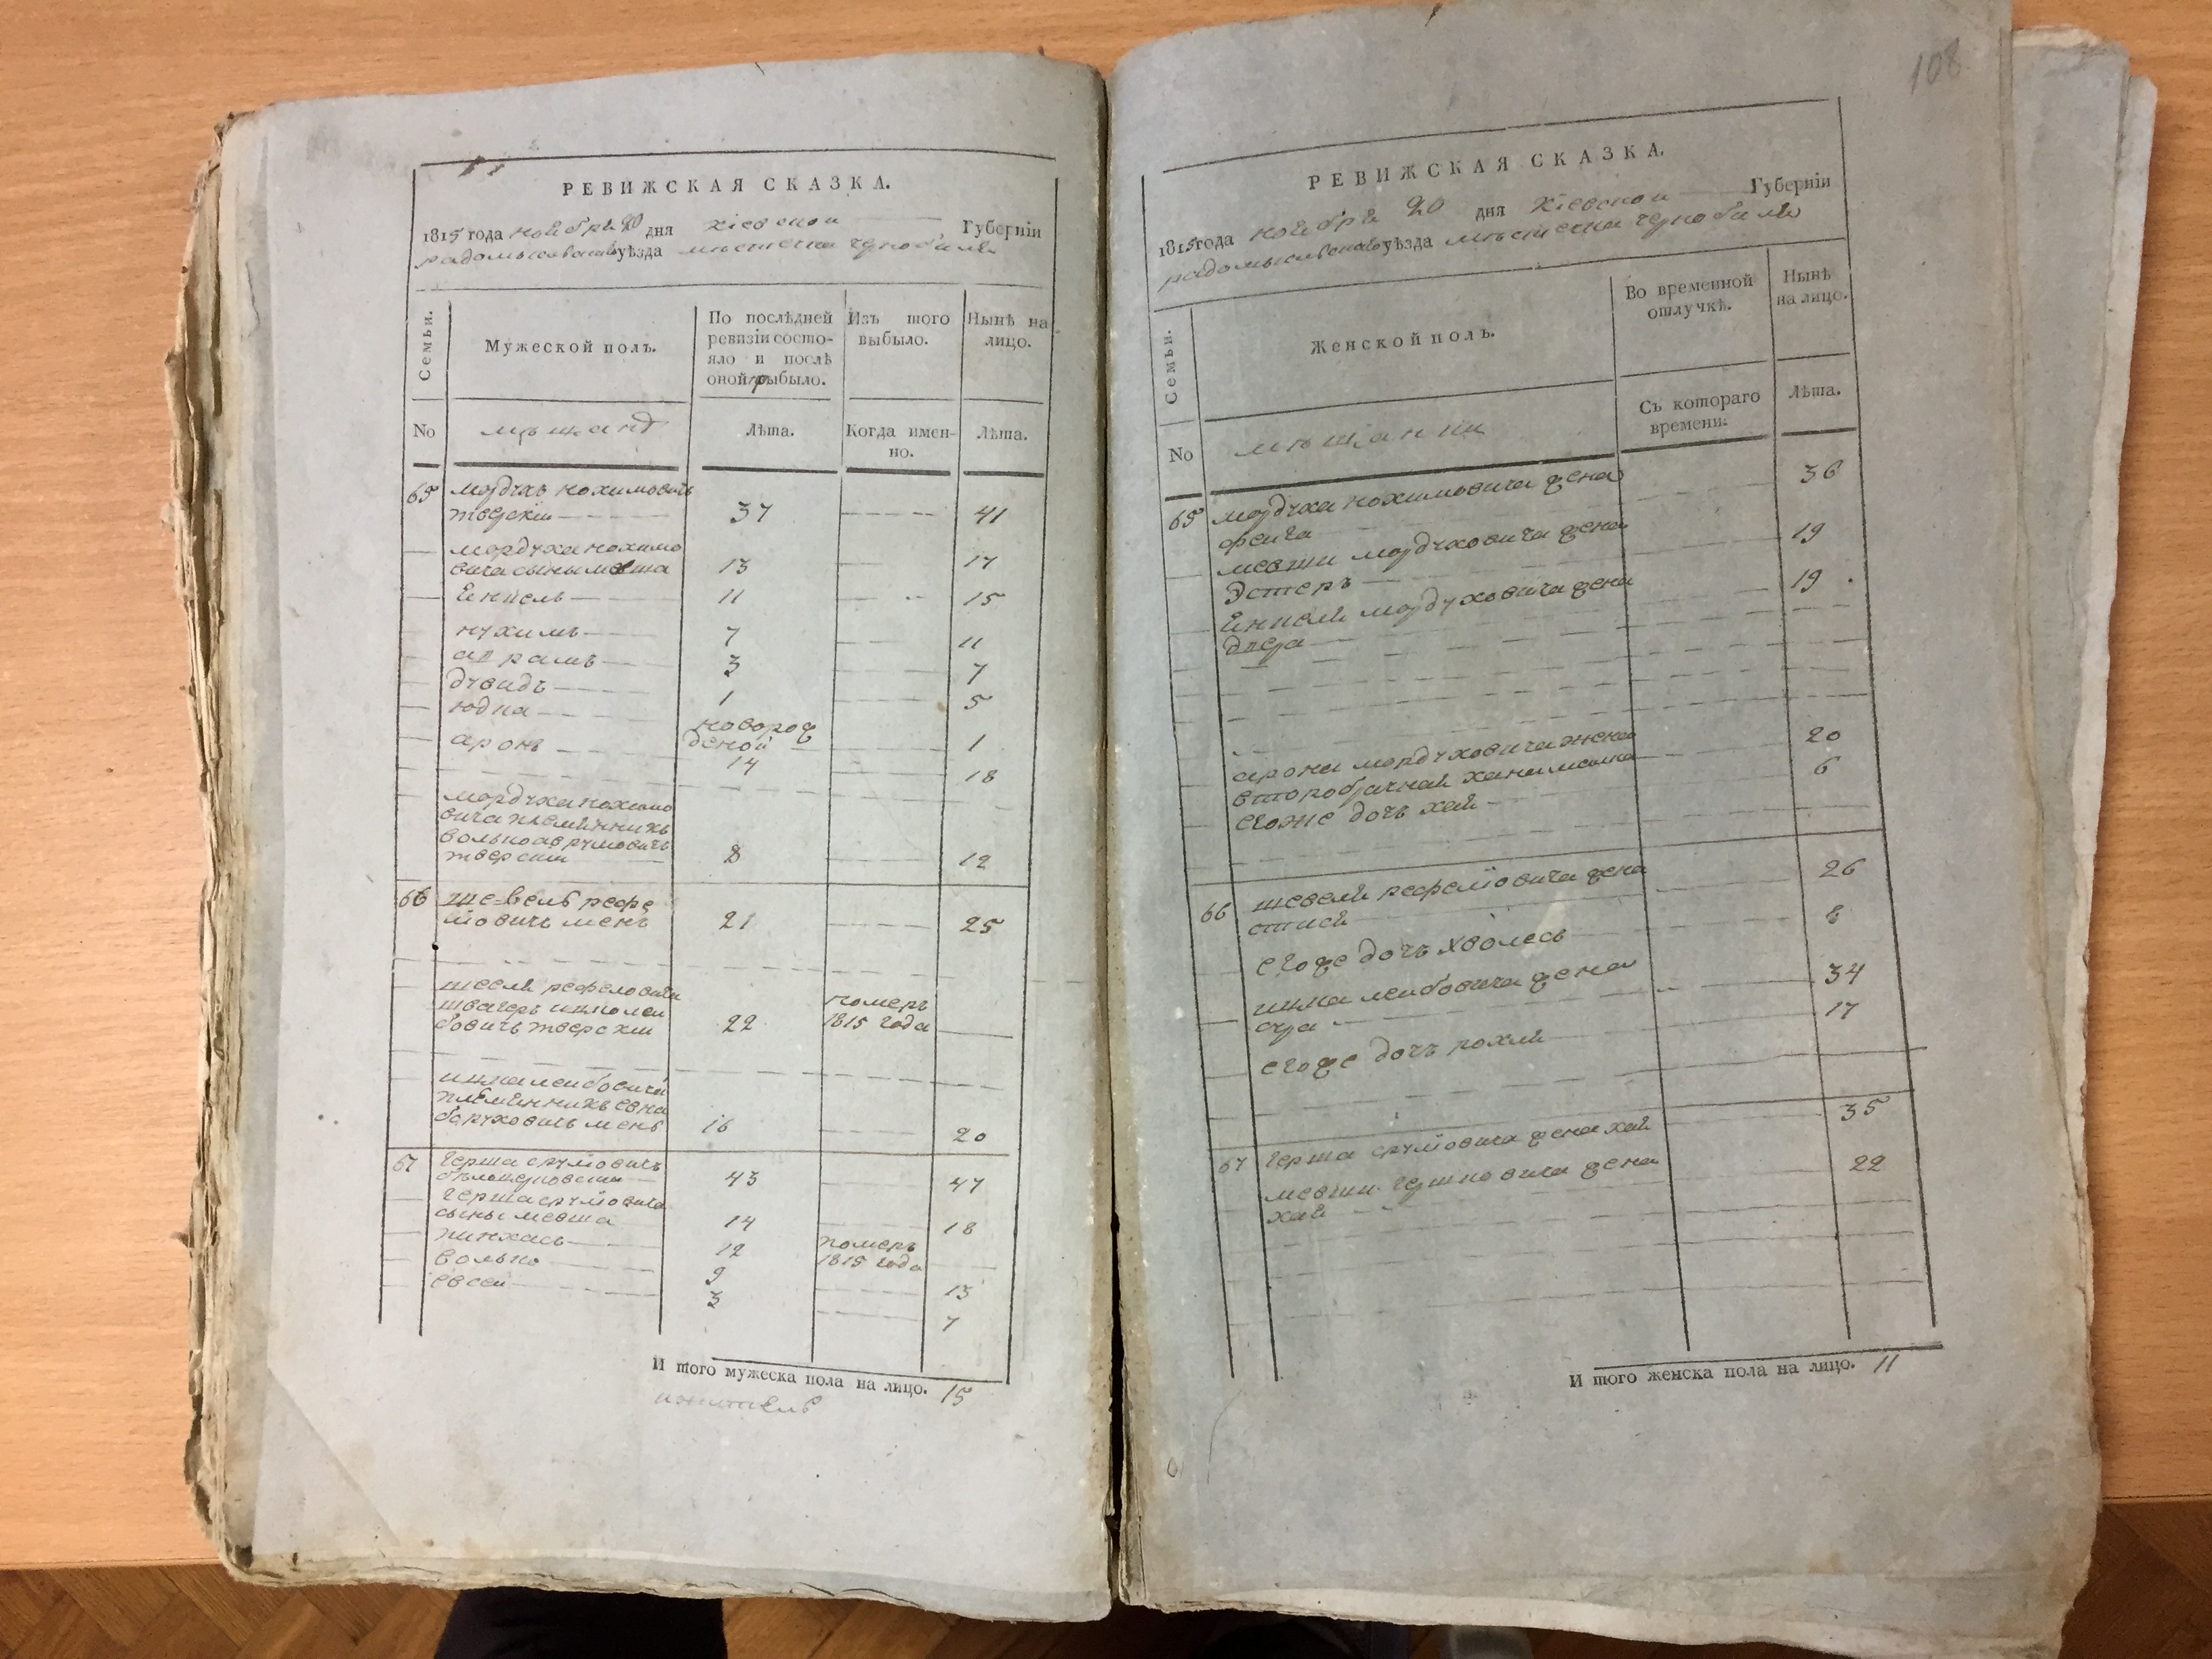 РЕВИЖСКАЯ СКАЗКА.
1815 года ноября 20 дня Кіевской Губерніи
уѣзда мѣстечка Чернобиля
Семьи.
Мужеской полъ.
По послѣдней
ревизіи состо-
яло и послѣ
оной прибыло.
Изъ того
выбыло.
Нынѣ на
лицо.
No
мѣщанъ
Лѣта.
Когда имен-
но.
Лѣта.
65 мордухъ нохимовичъ
тверскіи 37 41
мордуха нохимо
вича сыны мовша 13 17
Енкель 11 15
нухимъ 7 11
аврамъ 3 7
дувидъ 1 5
юдка новорож
деной 1
аронъ 14 18
мордуха нохимо
вича племянникъ
волько аврумовичъ
тверскіи 8 12
66 шевель рефе
ловичъ менъ 21 25
шевеля рефеловича
швагеръ ицко леи
бовичъ тверскіи 22 померъ
1815 года
ицка леибовича
племянникъ
боруховичъ менъ 16 20
67 герша срулiовичъ
43 47
герша срулiовича
сыны мовша 14 18
пинхасъ 12 померъ
1815 года
волько 9 13
евсеи 3 7
И того мужеска пола на лицо. 15
108
РЕВИЖСКАЯ СКАЗКА.
1815 года ноября 20 дня Кіевской Губерніи
уѣзда мѣстечка Чернобиля
Семьи.
Женской полъ.
Во временной
отлучкѣ.
Нынѣ
на лицо.
No
мѣщанки
Съ котораго
времени.
Лѣта.
65 мордуха нохимовича жена
феига 36
мовши мордуховича жена
Эстеръ 19
Енкеля мордуховича жена
двера 19
арона мордуховича жена
второбрачная хана 20
егоже дочь хая 6
66 шевеля рефеловича жена
26
егоже дочь 8
ицка леибовича жена
сура 34
егоже дочь рохля 17
67 герша срулiовича жена хая 35
мовши гершковича жена
хая 22
И того женска пола на лицо. 11